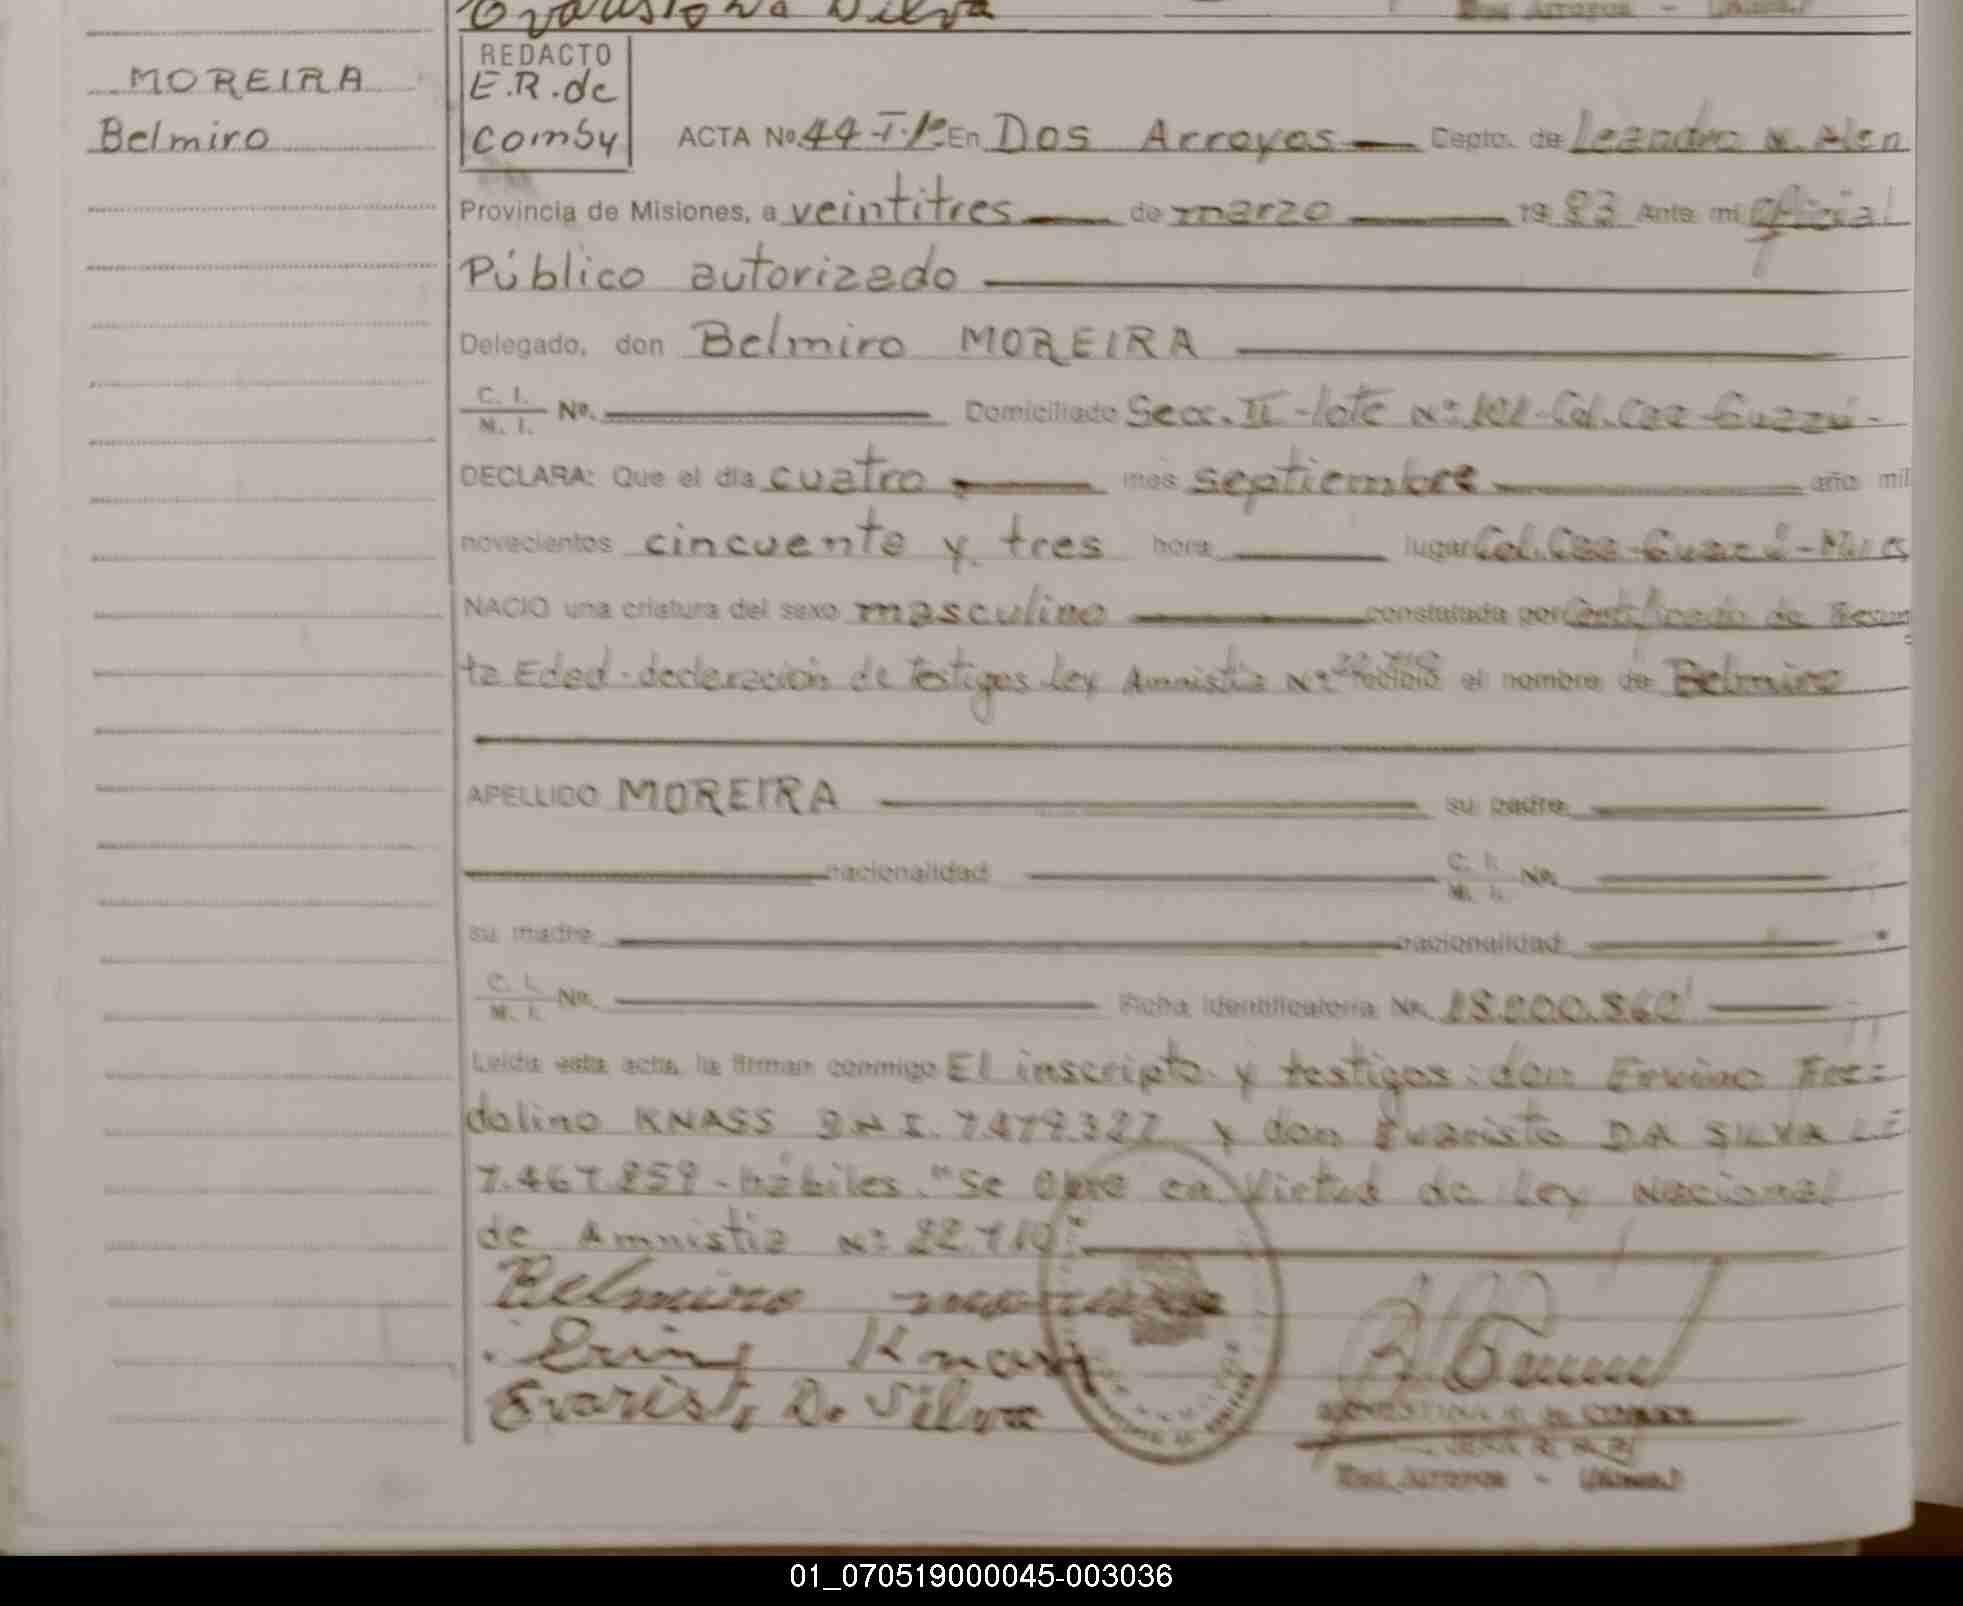 Evaristo Da Silva
Dos Arroyos - (Mnes.)
MOREIRA
Belmiro
REDACTO
E.R. de
Comby
ACTA No. 44-T.1º En Dos Arroyos Depto. de Leandro N. Alen
Provincia de Misiones, a veintitres de marzo 1983 Ante mi Oficial
Público autorizado
Delegado, don Belmiro MOREIRA
C. I. / M. I. No. Domiciliado Secc. II-lote Nº 101-Col. Caa-Guazú-
DECLARA: Que el día cuatro mes septiembre año mil
novecientos cincuenta y tres hora lugar Col. Caa-Guazú-Mnes
NACIO una criatura del sexo masculino constatada por Certificado de Presun
ta Edad-declaración de Testigos Ley Amnistia Nº recibió el nombre de Belmiro
APELLIDO MOREIRA su padre
nacionalidad C. I. / M. I. No.
su madre nacionalidad
C. I. / M. I. No. Ficha Identificatoria No.
Leída esta acta, la firman conmigo El inscripto y testigos: don Ervino Fre=
dolino KNASS D N I. 7.479.327 y don Evaristo DA SILVA L E
7.467.859-hábiles. "Se Obre en Virtud de Ley Nacional
de Amnistia Nº 22.710."
Belmiro
Ervino Knass
Evaristo Da Silva
Dos Arroyos - (Mnes.)
01_070519000045-003036